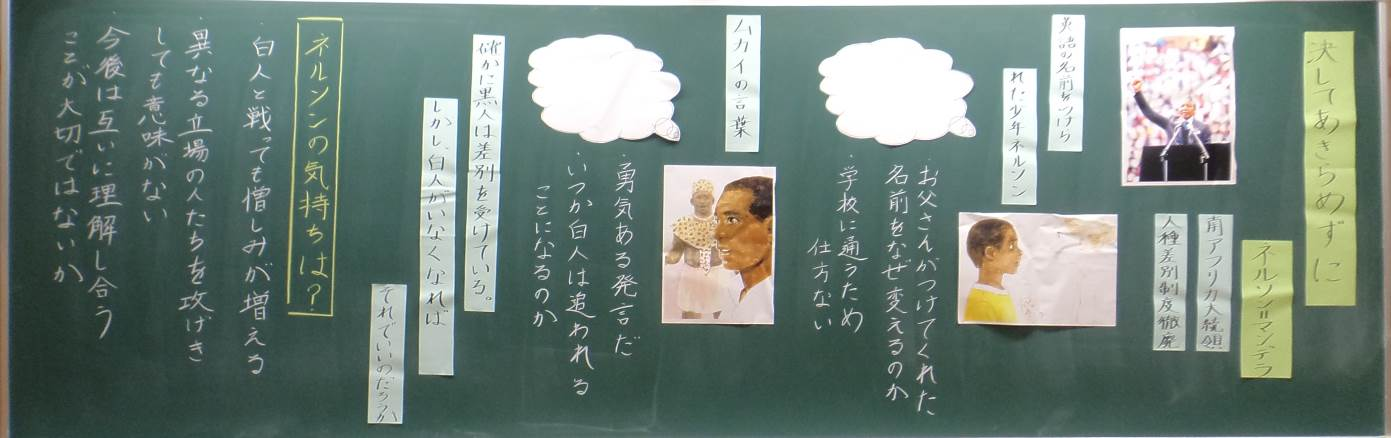 決してあきらめずに
ネルソン＝マンデラ
南アフリカ大統領
人種差別制度撤廃
英語の名前をつけら
れた少年ネルソン
・お父さんがつけてくれた
名前をなぜ変えるのか
・学校に通うため
仕方ない
ムカイの言葉
・勇気ある発言だ
・いつか白人は追われる
ことになるのか
確かに黒人は差別を受けている。
しかし、白人がいなくなれば
それでいいのだろうか
ネルソンの気持ちは？
・白人と戦っても憎しみが増える
・異なる立場の人たちを攻げき
しても意味がない
・今後は互いに理解し合う
ことが大切ではないか